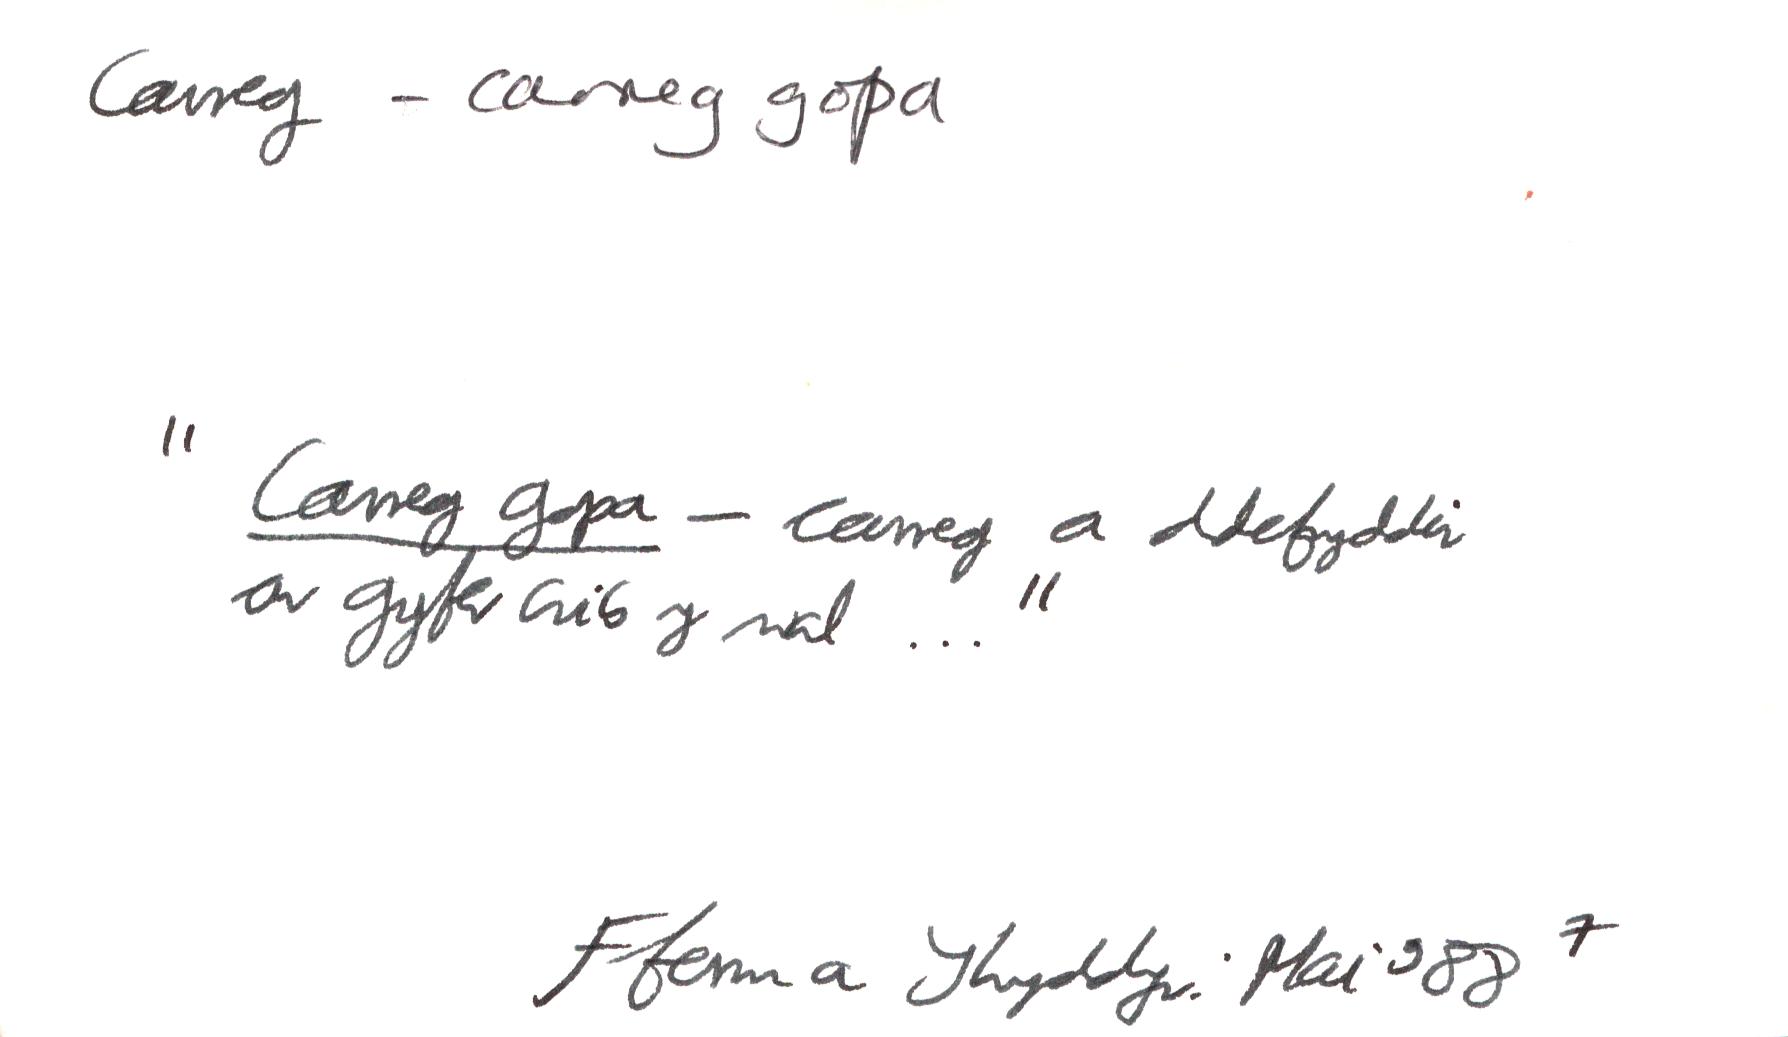 Carreg - carreg gopa
" Carreg gopa – carreg a ddefyddir
ar gyfer crib y wal ... "
Fferm a Thyddyn. Mai '88 7